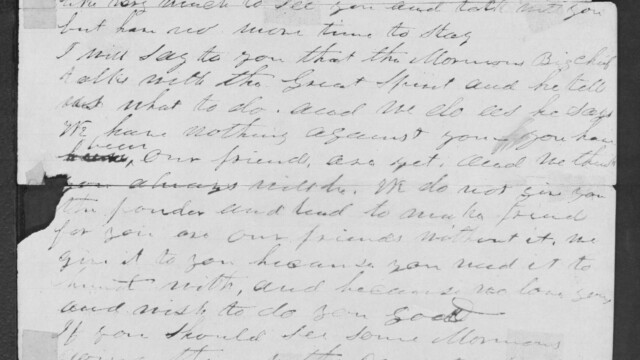 very much to see you and talk with you
but have no more time to stay
I will say to you that the Mormon Big chief
talks with the Great Spirit and he tells
what to do. and we do as he says
We have nothing against you, you have
been, our friend, are yet, and we think
you always will be. We do not give you
the powder and lead to make friend
for you are our friends without it, we
give it to you because you need it to
with, and because we love you
and wish to do you good
If you should see some Mormons